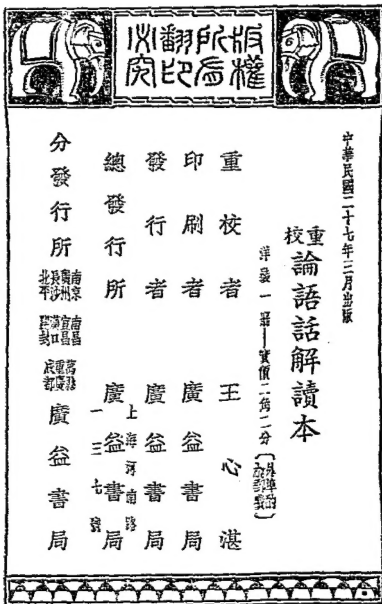 版權所有翻印必究
中華民國二十七年三月出版
重校論語話解讀本
洋裝一冊——實價二角二分
重校者 王心湛
印刷者 廣益書局
發行者 廣益書局
總發行所 上海河南路一三七號 廣益書局
分發行所 南京 廣州 長沙 北平 南昌 宜昌 漢口 重慶 成都 廣益書局